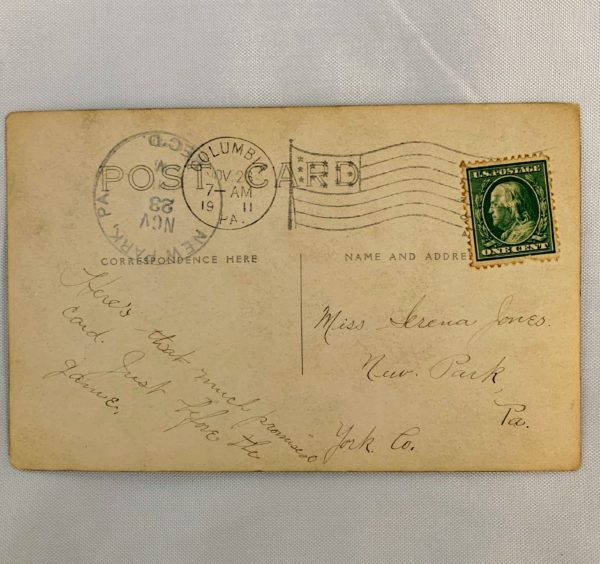 POST CARD
NEW PARK, PA.
NOV
23
REC'D.
COLUMBIA
NOV. 2
7-AM
19 11
PA.
U.S. POSTAGE
ONE CENT
CORRESPONDENCE HERE
NAME AND ADDRE
Here's that much promised
card. Just before the
game.
Miss Serena Jones.
New. Park,
Pa.
York. Co.